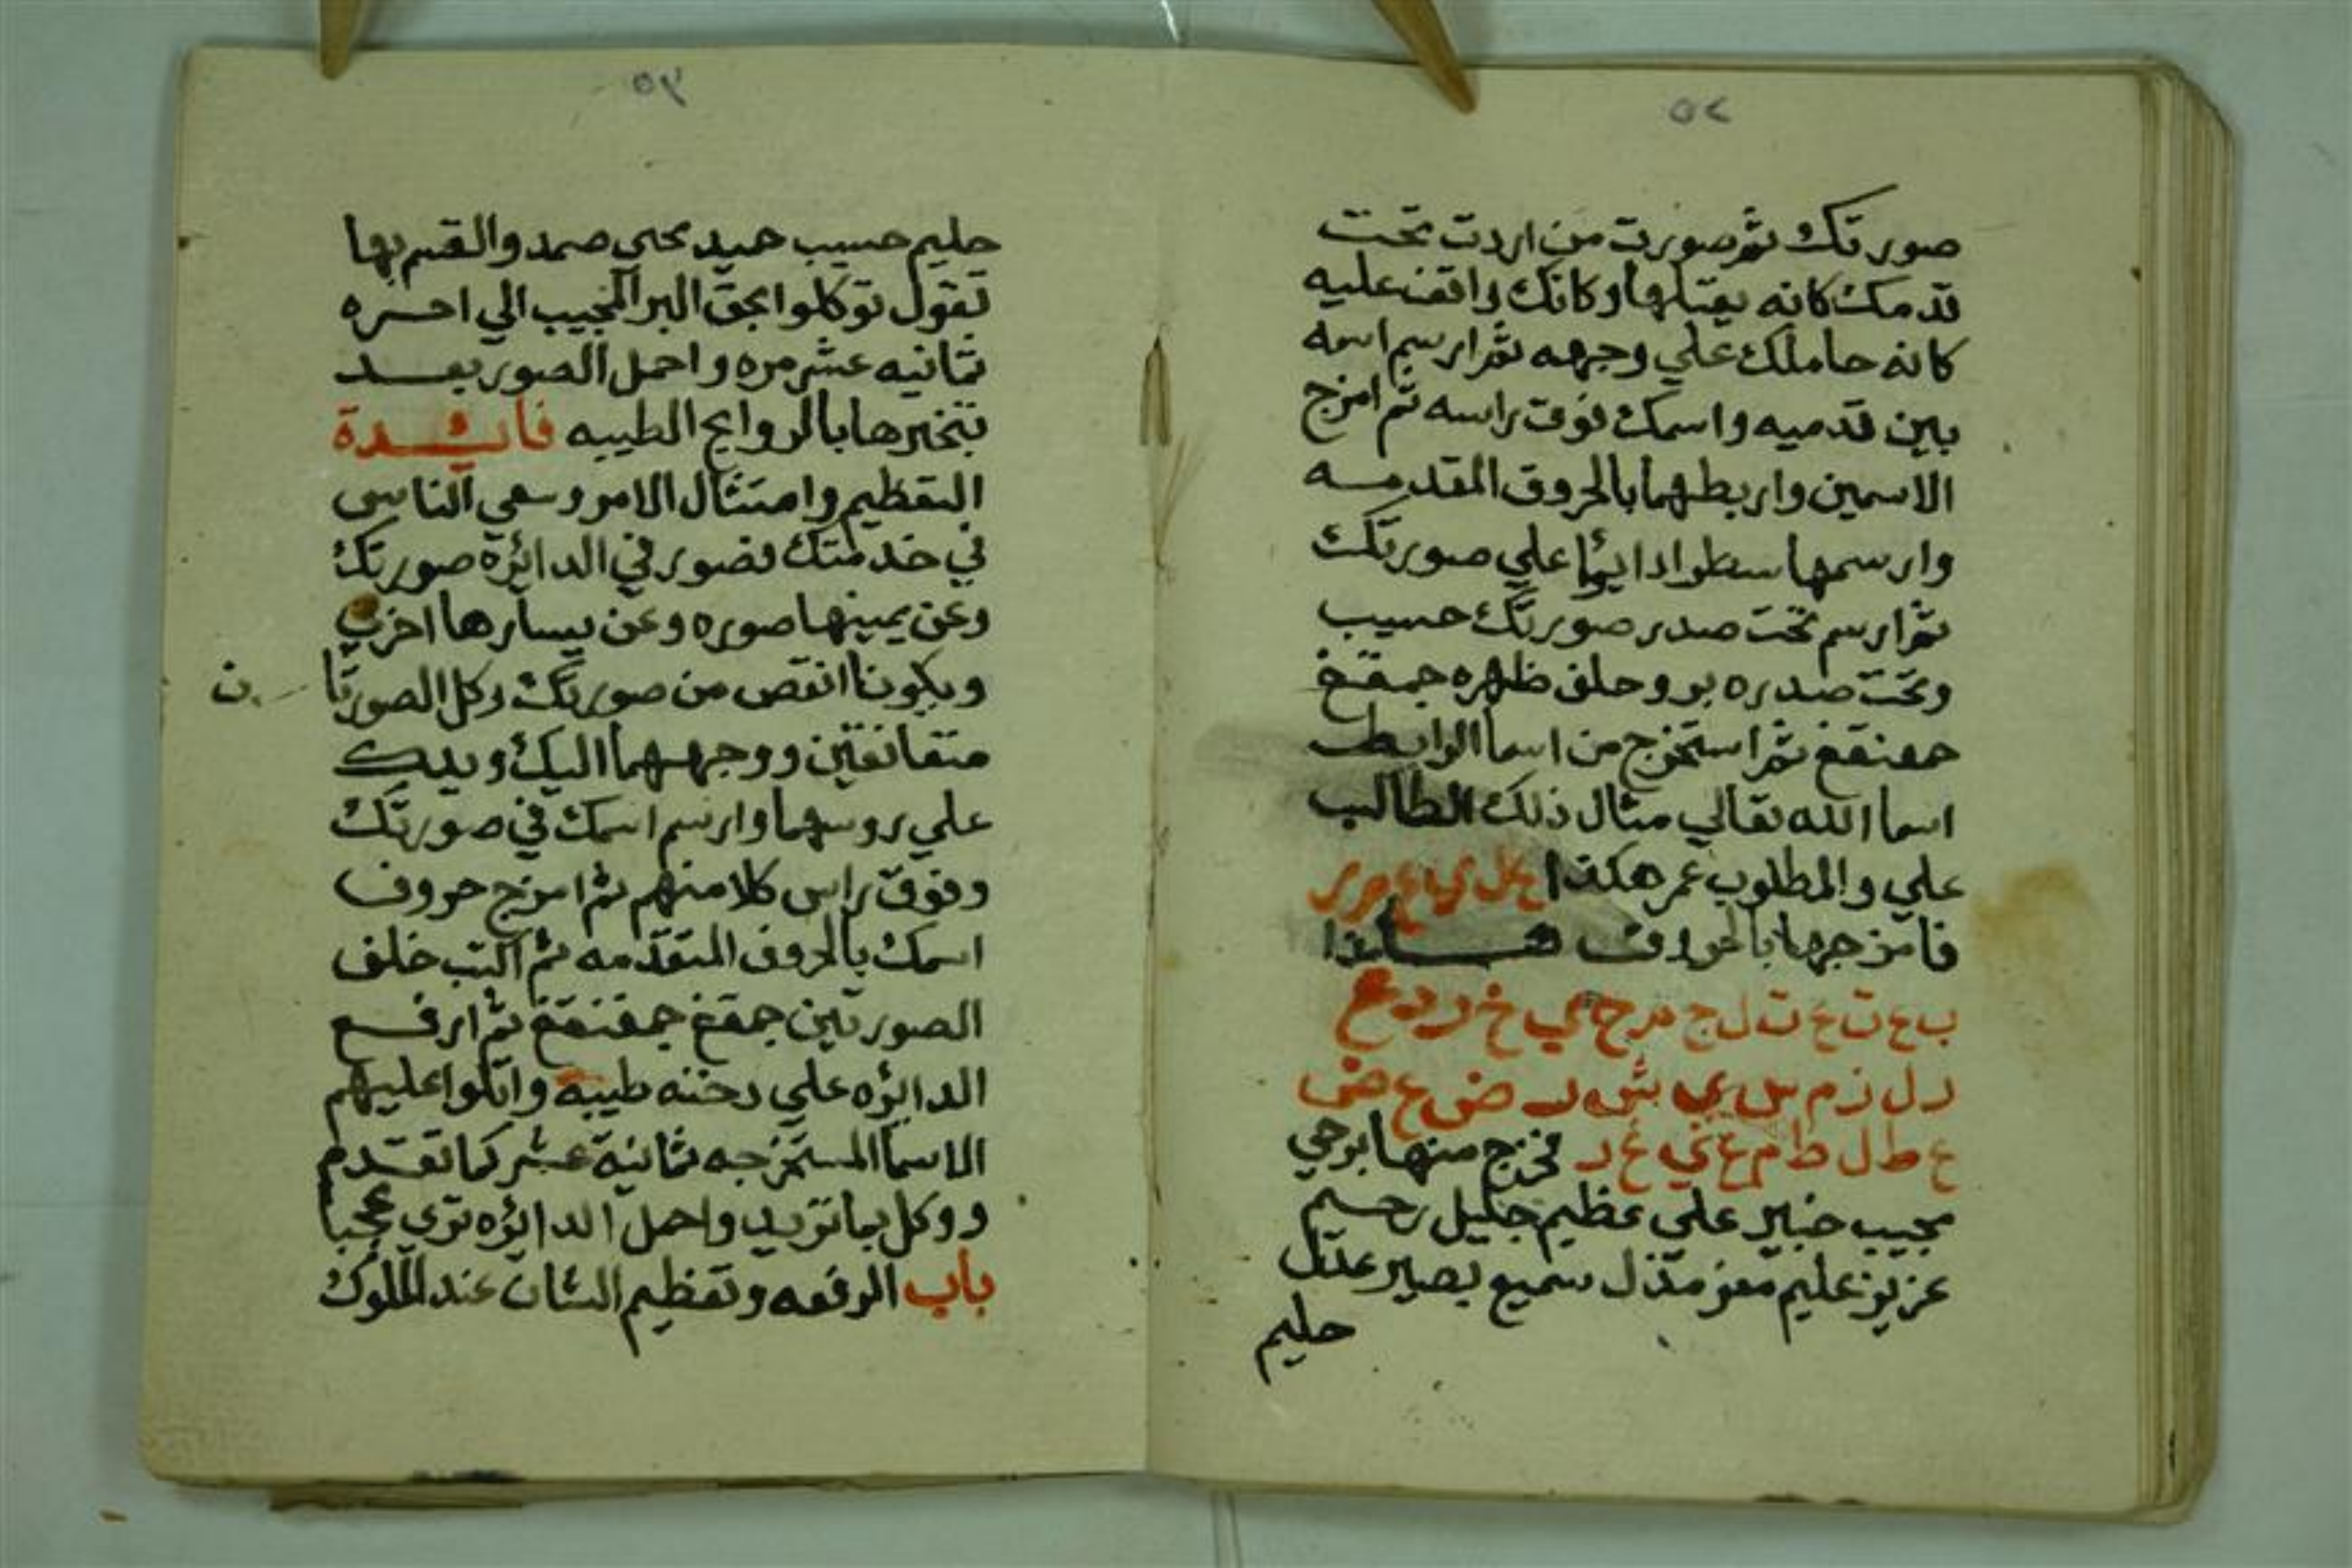 ٥٨
صورتك ثم صورت من اردت تحت
قدمك كانه يقبلها وكانك واقف عليه
كانه حاملك علي وجهه ثم ارسم اسمه
بين قدميه واسمك فوق راسه ثم امزج
الاسمين واربطهما بالحروق المقدمه
وارسمها سطرا دايما علي صورتك
ثم ارسم تحت صدر صورتك حسيب
وتحت صدره بر وحلف ظهره جمقغ
حفنقغ ثم استخرج من اسما الوابط
اسما الله تعالي مثال ذلك الطالب
علي والمطلوب عمر هكذا ع ل ي ع م ر
فامزجها بالحروف هكذا
ب ع ت ع ت ل ج م ح ي خ ر د ع
د ل ذ م س ي ش ر ض ع ض
ع ط ل ط م ع ي غ ر فخرج منها بر حي
مجيب خبير علي عظيم جليل رحيم
عزيز عليم معز مذل سميع بصير عدل
حليم
٥٩
حليم حسيب حميد محي صمد والقسم بها
تقول توكلوا بحق البر المجيب الي اخره
ثمانيه عشر مره واحمل الصور بعد
تبخيرها بالروايح الطيبه فائدة
التعظيم وامتثال الامر وسعي الناس
في خدمتك تصور في الدائره صورتك
وعن يمينها صوره وعن يسارها اخري
ويكونا انقص من صورتك وكل الصورتا
ن
متقانقتين ووجههما اليك ويديك
علي روسهما وارسم اسمك في صورتك
وفوق راس كلا منهم ثم امزج حروف
اسمك بالحروف المتقدمه ثم اكتب خلف
الصورتين جمقغ جمفنقغ ثم ارفع
الدائره علي دخنه طيبه واتلوا عليهم
الاسما المستخرجه ثمانية عشر كما تقدم
ووكل بما تريد واحمل الدائره تري عجبا
باب الرفعه وتعظيم الشان عند الملوك